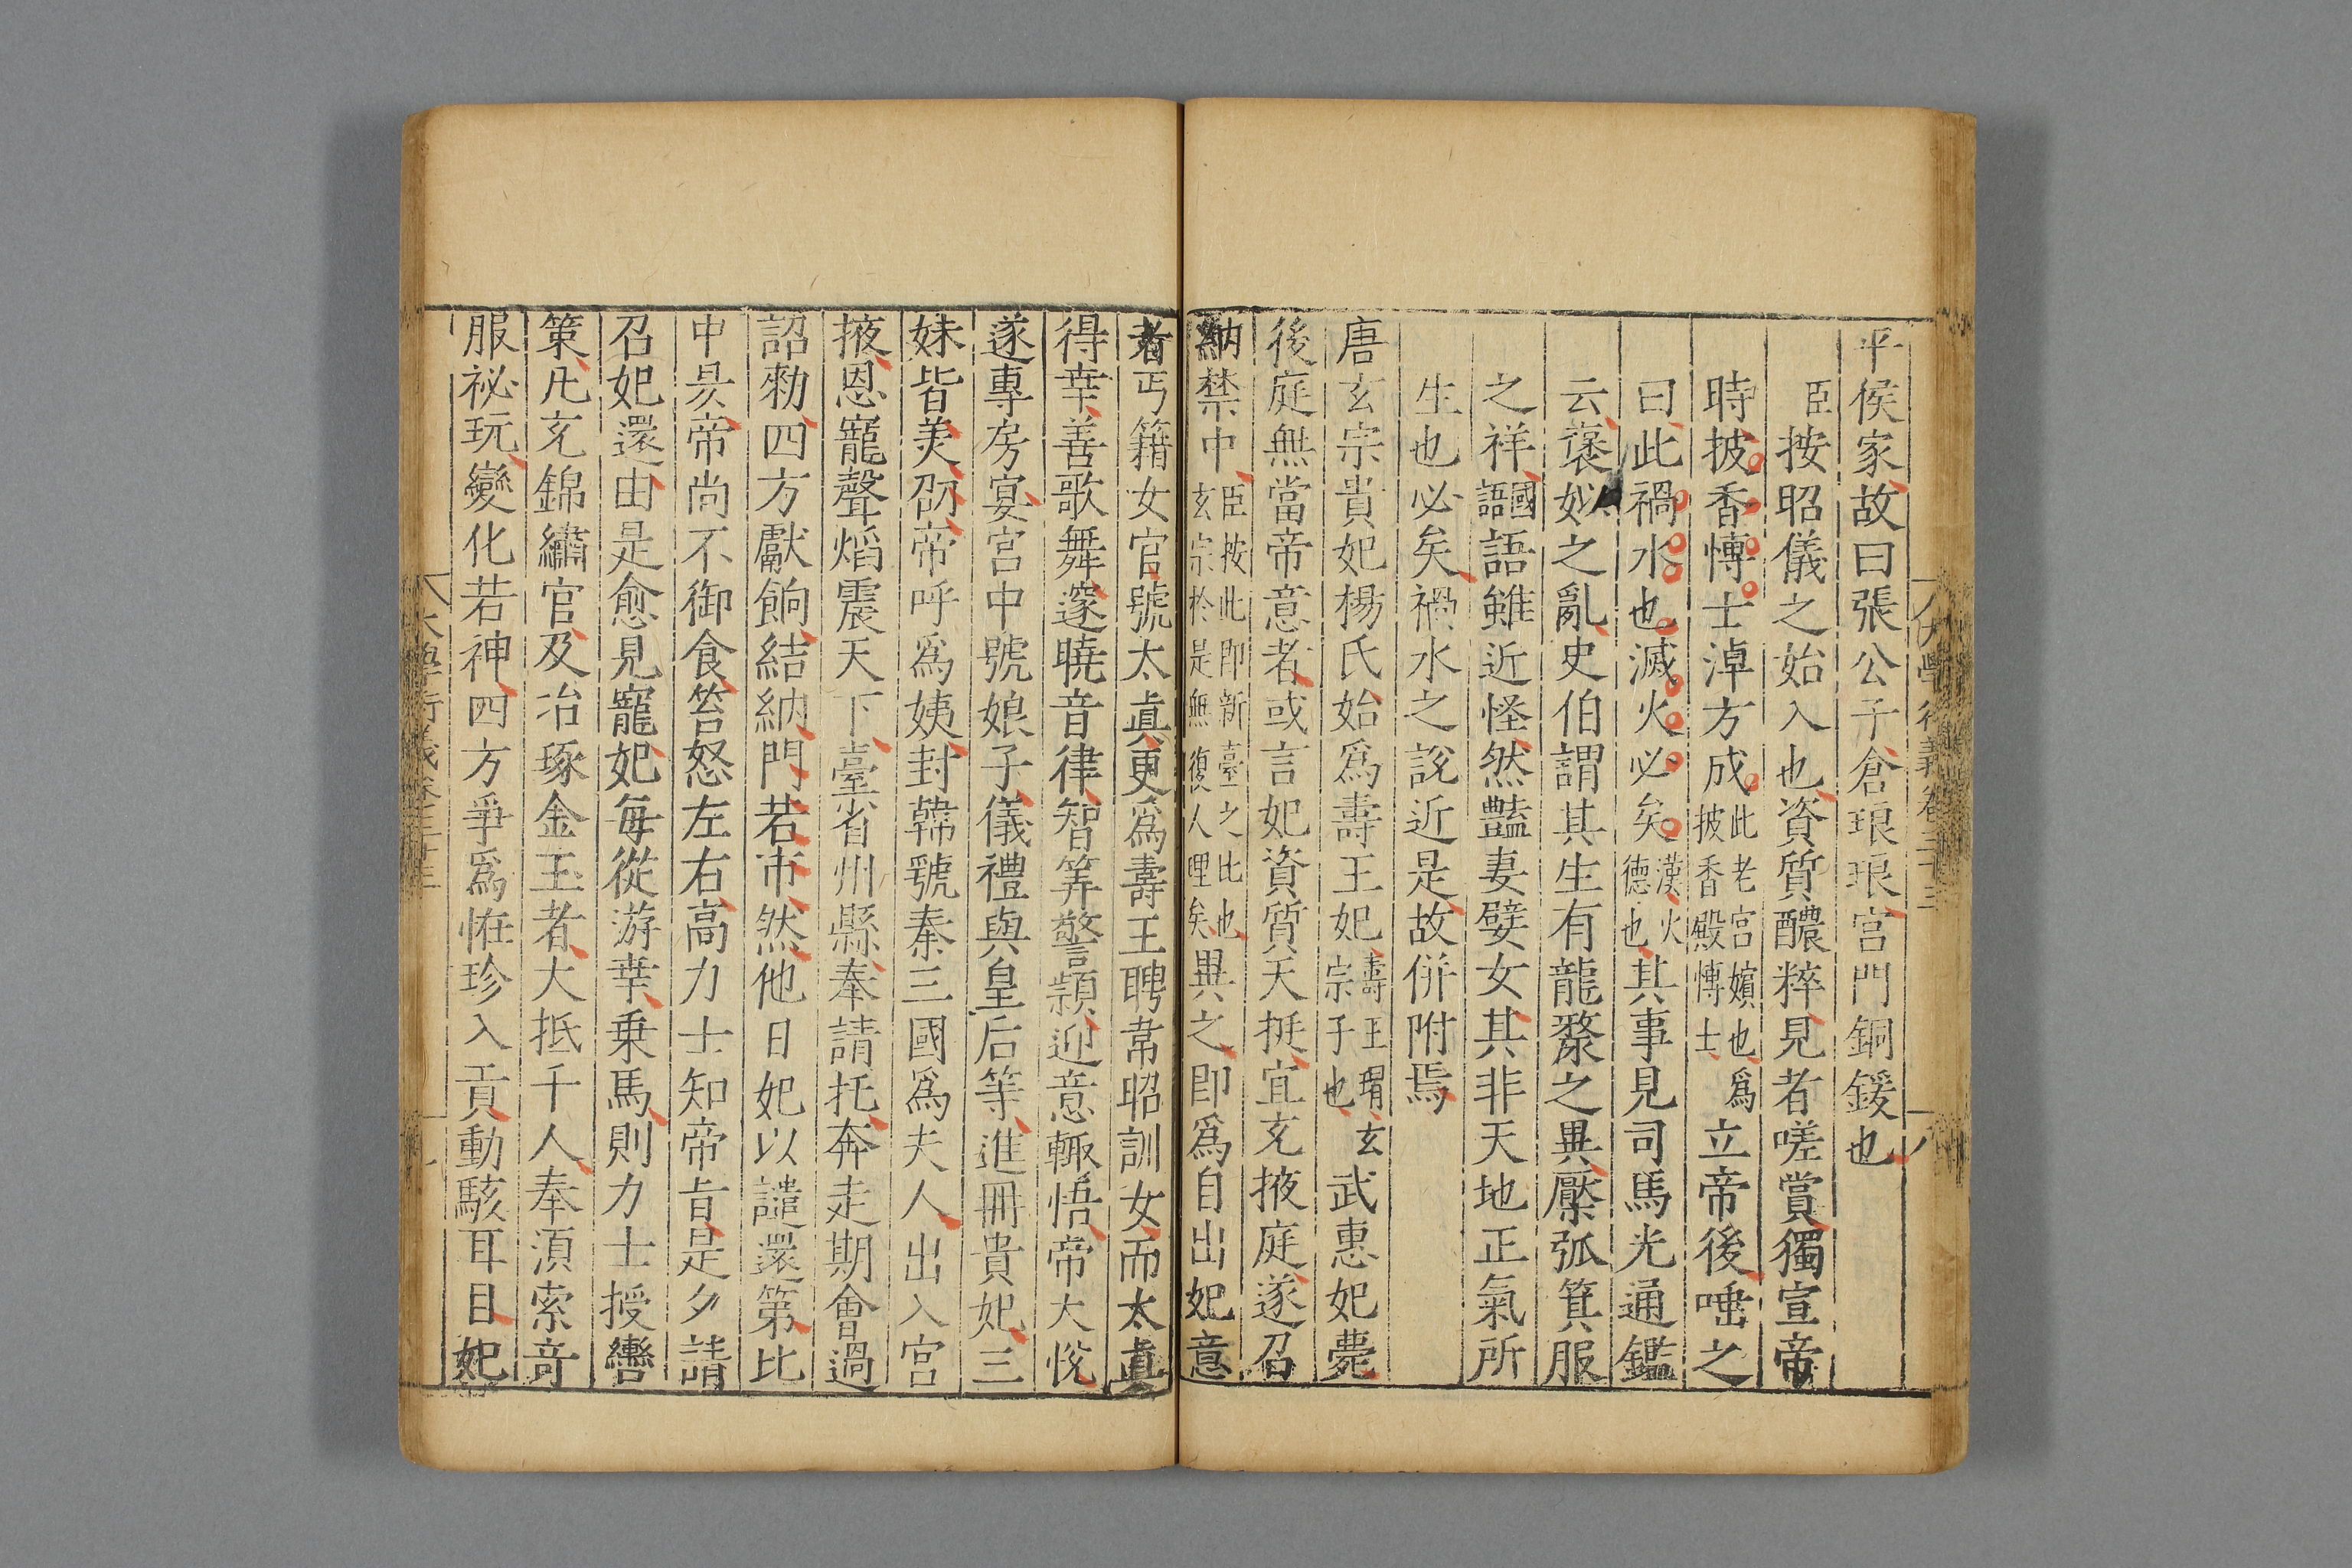 平侯家故曰張公子倉琅琅宫門銅鍰也
臣按昭儀之始入也資質醲粹見者嗟賞獨宣帝
時披香博士淖方成此老宫嬪也爲披香殿博士立帝後唾之
曰此禍水也滅火必矣漢火德也其事見司馬光通鑑
云褒姒之亂史伯謂其生有龍漦之異檿弧箕服
之祥國語語雖近怪然豔妻嬖女其非天地正氣所
生也必矣禍水之說近是故併附焉
唐玄宗貴妃楊氏始爲壽王妃壽王瑁玄宗子也武惠妃薨
後庭無當帝意者或言妃資質天挺宜充掖庭遂召
納禁中臣按此即新臺之比也玄宗於是無復人理矣異之即爲自出妃意
者丐籍女官號太眞更爲壽王聘韋昭訓女而太眞
得幸善歌舞邃曉音律智筭警頴迎意輒悟帝大悅
遂專房宴宫中號娘子儀禮與皇后等進冊貴妃三
妹皆美劭帝呼爲姨封韓虢秦三國爲夫人出入宫
掖恩寵聲焰震天下臺省州縣奉請托奔走期會過
詔勑四方獻餉結納門若市然他日妃以譴還第比
中昃帝尚不御食笞怒左右高力士知帝旨是夕請
召妃還由是愈見寵妃每從游幸乗馬則力士授轡
策凡充錦繡官及冶琢金玉者大抵千人奉湏索竒
服祕玩變化若神四方爭爲恠珍入貢動駭耳目妃
大學衍義卷三十三
八